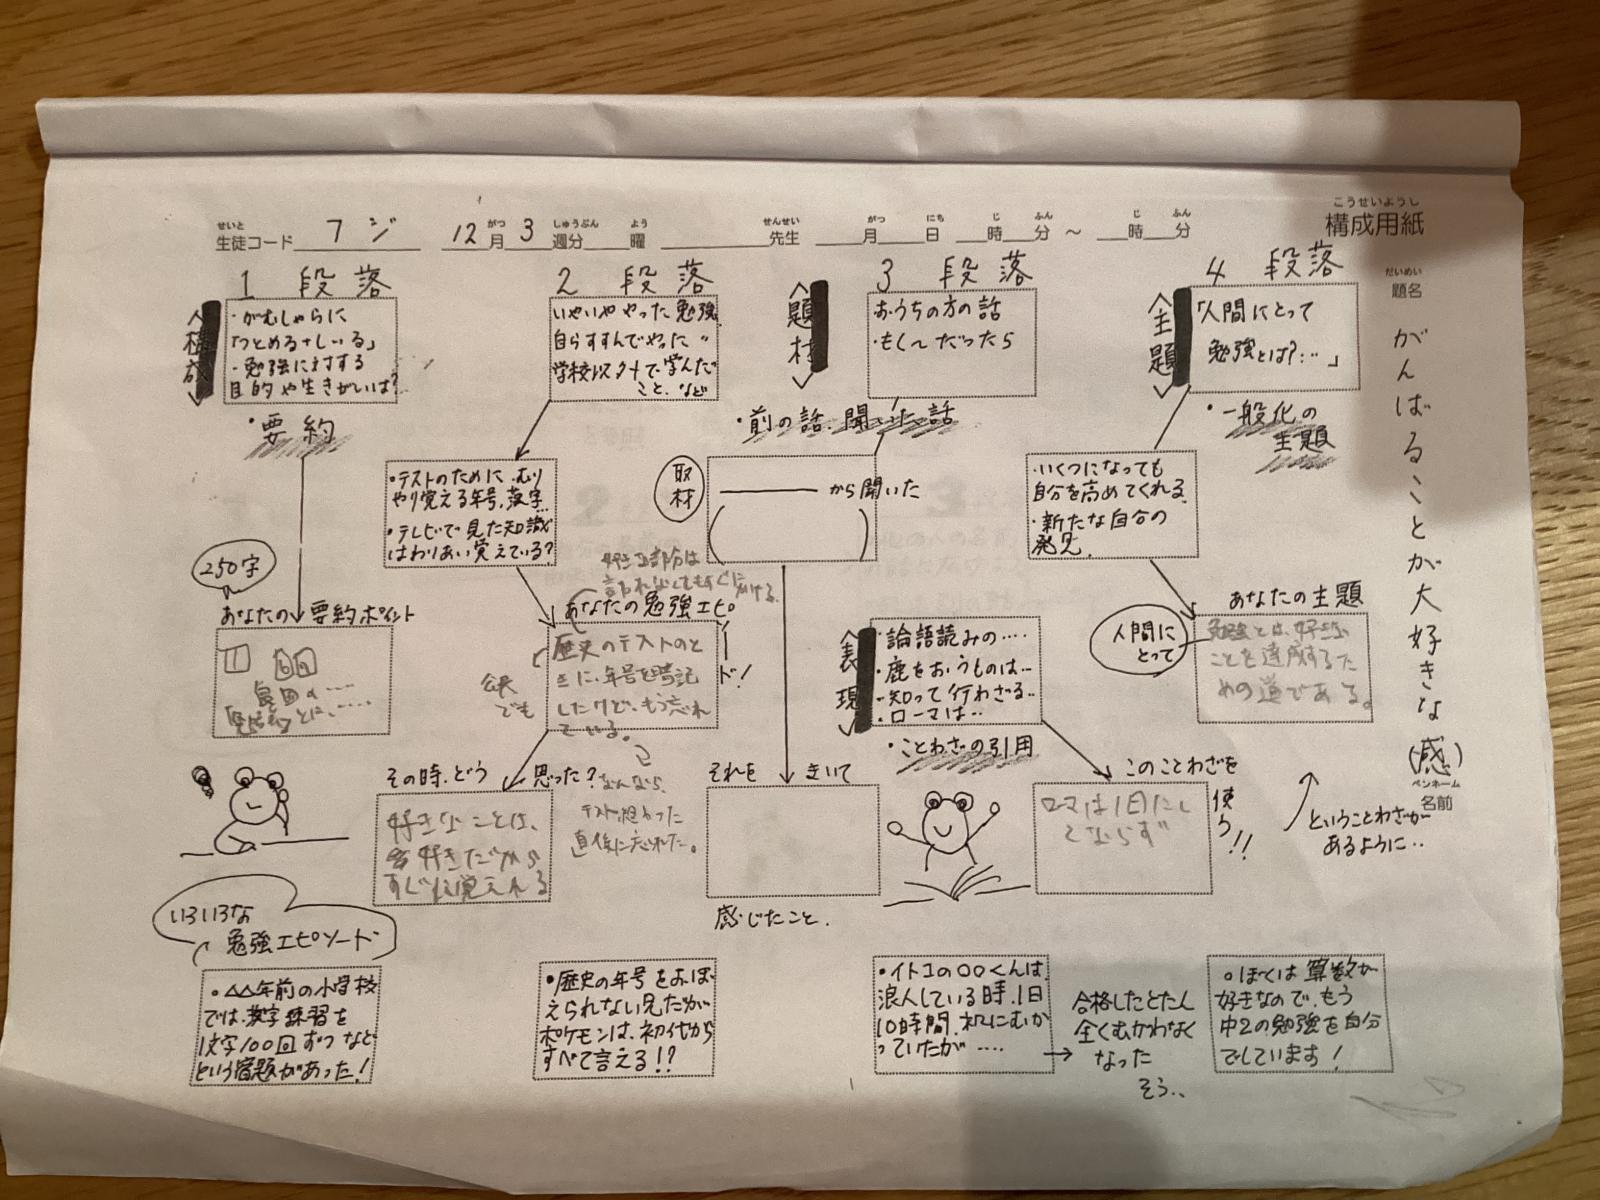 こうせいようし
構成用紙
せいと
生徒コード フジ
がつ しゅうぶん よう
12月3週分 曜
せんせい
先生
がつ にち じ ふん じ ふん
月 日 時 分 ～ 時 分
だいめい
題名
がんばることが大好きな
(感)
ペンネーム
名前
1 段落
<構成>
・がむしゃらに
「つとめる+しいる」
・勉強に対する
目的や生きがいは?
・要約
250字
あなたの要約ポイント
2 段落
いやいややった勉強
自らすすんでやった 〃
学校以外で学んだ
こと.など
・テストのために.むり
やり覚える年号、漢字…
・テレビで見た知識
はわりあい覚えている?
好きな部分は
あなたの勉強エピソード!
歴史のテストのと
きに、年号を暗記
したけど、もう忘れ
ている。
その時.どう思った?
好きなことは、
好きだから
すぐに覚えれる
なんなら、
テスト終わった
直後に忘れた。
<題材>
3 段落
おうちの方の話
・もし〜だったら
・前の話.聞いた話
取材
から聞いた
( )
それを きいて
感じたこと.
<表現>
・論語読みの‥‥
・鹿をおうものは…
・知って行わざる‥
・ローマは‥
・ことわざの引用
このことわざを
使う!!
ローマは1日にし
てならず
ということわざが
あるように‥
<主題>
4 段落
「人間にとって
勉強とは?…」
・一般化の
主題
・いくつになっても
自分を高めてくれる
・新たな自分の
発見.
あなたの主題
人間に
とって
勉強とは、好きな
ことを達成するた
めの道である。
いろいろな
勉強エピソード
・△△年前の小学校
では.漢字練習を
1文字100回ずつなど
という宿題があった!
・歴史の年号をおぼ
えられない兄たが
ポケモンは、初代から
すべて言える!?
・イトコの〇〇くんは.
浪人している時.1日
10時間.机にむか
っていたが ‥‥
→ 合格したとたん
全くむかわなく
なった
そう‥
。ぼくは算数が
好きなので、もう
中2の勉強を自分
でしています!